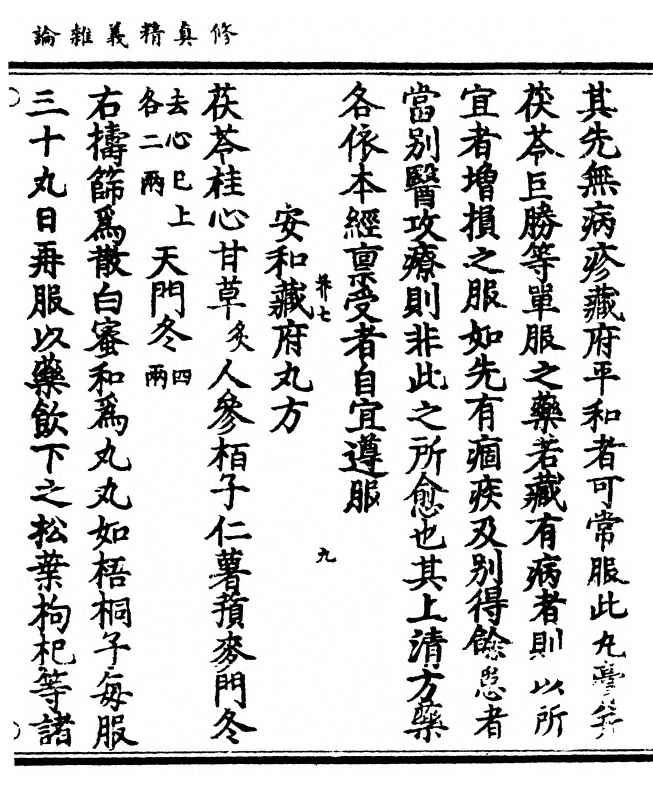 修真精義雜論
其先無病疹藏府平和者可常服此丸
茯苓巨勝等單服之藥若藏有病者則以所
宜者增損之服如先有痼疾及別得餘患者
當別醫攻療則非此之所愈也其上清方藥
各依本經禀受者自宜遵服
養七 九
安和藏府丸方
茯苓桂心甘草炙人參栢子仁薯蕷麥門冬
去心已上各二兩天門冬四兩
右擣篩爲散白蜜和爲丸丸如梧桐子每服
三十丸日再服以藥飲下之松葉枸杞等諸